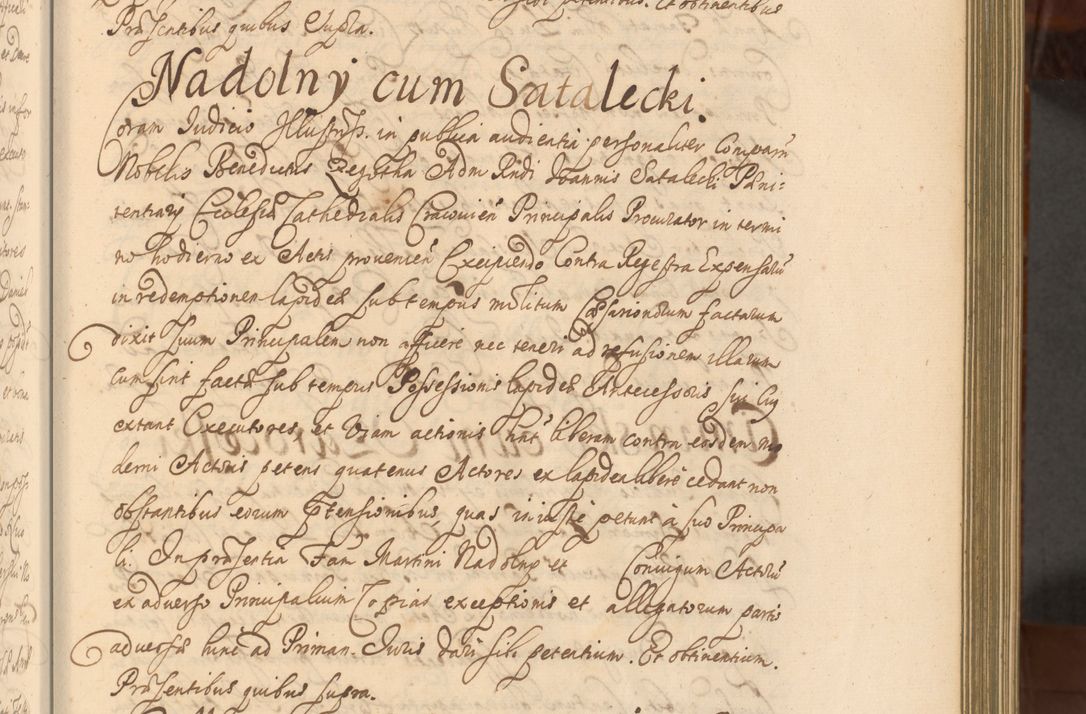 Præsentibus quibus Supra.
Nadolny cum Satalecki.
Coram Judicio Illustriss. in publica audientia personaliter Comparn̄
Nobilis Benedictus Regulha Adm Rndi Joannis Satalecki Pæni:
tentiarÿ Ecclesiæ Cathedralis Cracovien̄ Principalis Procurator in termi
no hodierno ex Actis provenien̄ Excipiendo Contra Regestra Expensarū
in redemptionem lapideæ sub tempus militum Cæsarionorum factarum
dixit suum Principalem non afficere nec teneri ad refusionem illarum
cum sint factæ sub tempus Possessionis lapideæ Antecessoris sui cuj
extant Executores, et Viam actionis hn̄t liberam contra eosdem mo
derni Actoris petens quatenus Actores ex lapidea libere cedant non
obstantibus eorum prtensionibus, quas iniuste petunt à suo Principa
li. In præsentia Fam. Martini Nadolny et Coniugum Actorū
ex adverso Principalium Copias exceptionis et allegatorum partis
adversæ hinc ad Priman. Juris dari sibi petentium. Et obtinentium.
Præsentibus quibus supra.